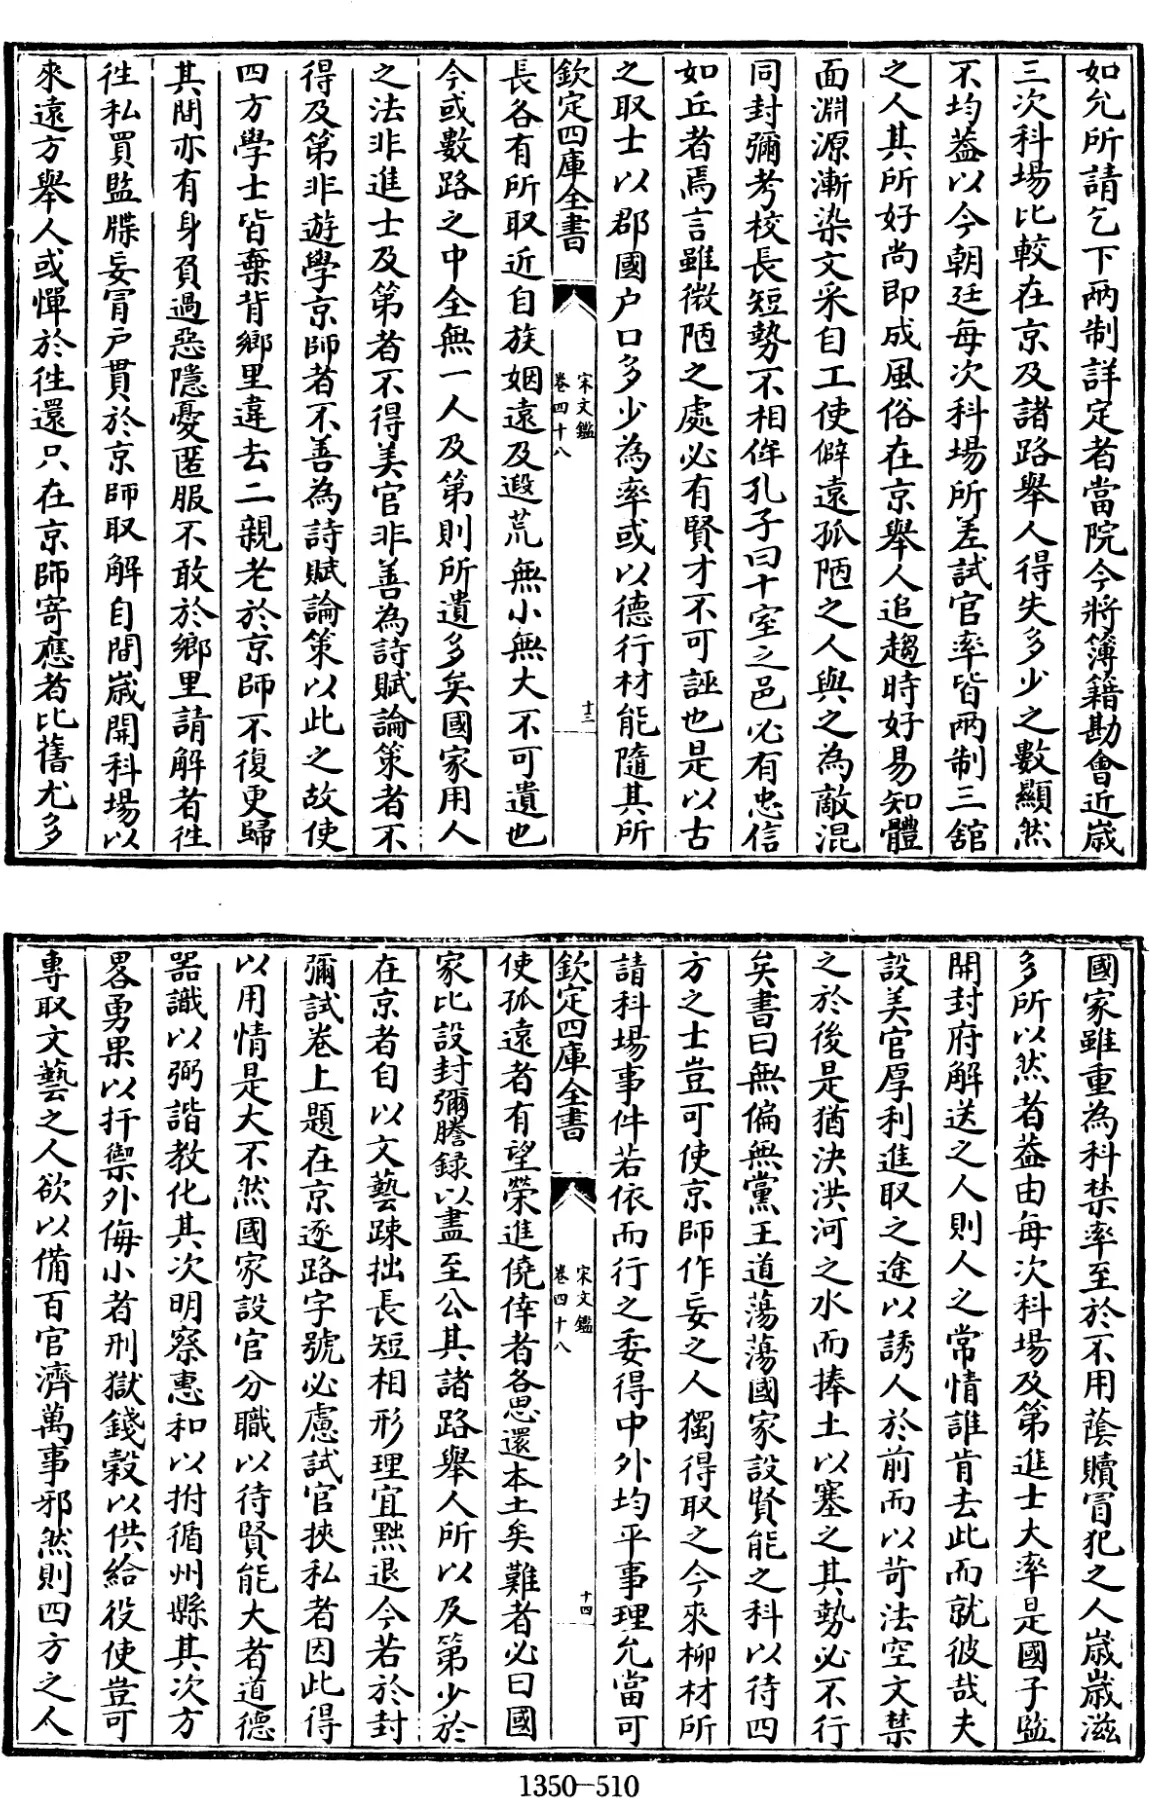 如允所請乞下兩制詳定者當院今將簿籍勘會近歲
三次科場比較在京及諸路舉人得失多少之數顯然
不均葢以今朝廷每次科場所差試官率皆兩制三舘
之人其所好尚即成風俗在京舉人追趨時好易知體
面淵源漸染文采自工使僻遠孤陋之人與之為敵混
同封彌考校長短勢不相侔孔子曰十室之邑必有忠信
如丘者焉言雖微陋之處必有賢才不可誣也是以古
之取士以郡國户口多少為率或以德行材能隨其所
欽定四庫全書
宋文鑑
卷四十八
十三
長各有所取近自族姻遠及遐荒無小無大不可遺也
今或數路之中全無一人及第則所遺多矣國家用人
之法非進士及第者不得美官非善為詩賦論策者不
得及第非遊學京師者不善為詩賦論策以此之故使
四方學士皆棄背鄉里違去二親老於京師不復更歸
其間亦有身負過惡隱憂匿服不敢於鄉里請解者往
往私買監牒妄冒戶貫於京師取解自間歲開科場以
來遠方舉人或憚於往還只在京師寄應者比舊尤多
國家雖重為科禁率至於不用蔭贖冒犯之人歲歲滋
多所以然者葢由每次科場及第進士大率是國子監
開封府解送之人則人之常情誰肯去此而就彼哉夫
設美官厚利進取之途以誘人於前而以苛法空文禁
之於後是猶決洪河之水而捧土以塞之其勢必不行
矣書曰無偏無黨王道蕩蕩國家設賢能之科以待四
方之士豈可使京師作妄之人獨得取之今來柳材所
請科場事件若依而行之委得中外均平事理允當可
欽定四庫全書
宋文鑑
卷四十八
十四
使孤遠者有望榮進僥倖者各思還本土矣難者必曰國
家比設封彌謄録以盡至公其諸路舉人所以及第少於
在京者自以文藝踈拙長短相形理宜黜退今若於封
彌試卷上題在京逐路字號必慮試官挾私者因此得
以用情是大不然國家設官分職以待賢能大者道德
器識以弼諧教化其次明察惠和以拊循州縣其次方
畧勇果以扞禦外侮小者刑獄錢榖以供給役使豈可
專取文藝之人欲以備百官濟萬事邪然則四方之人
1350-510